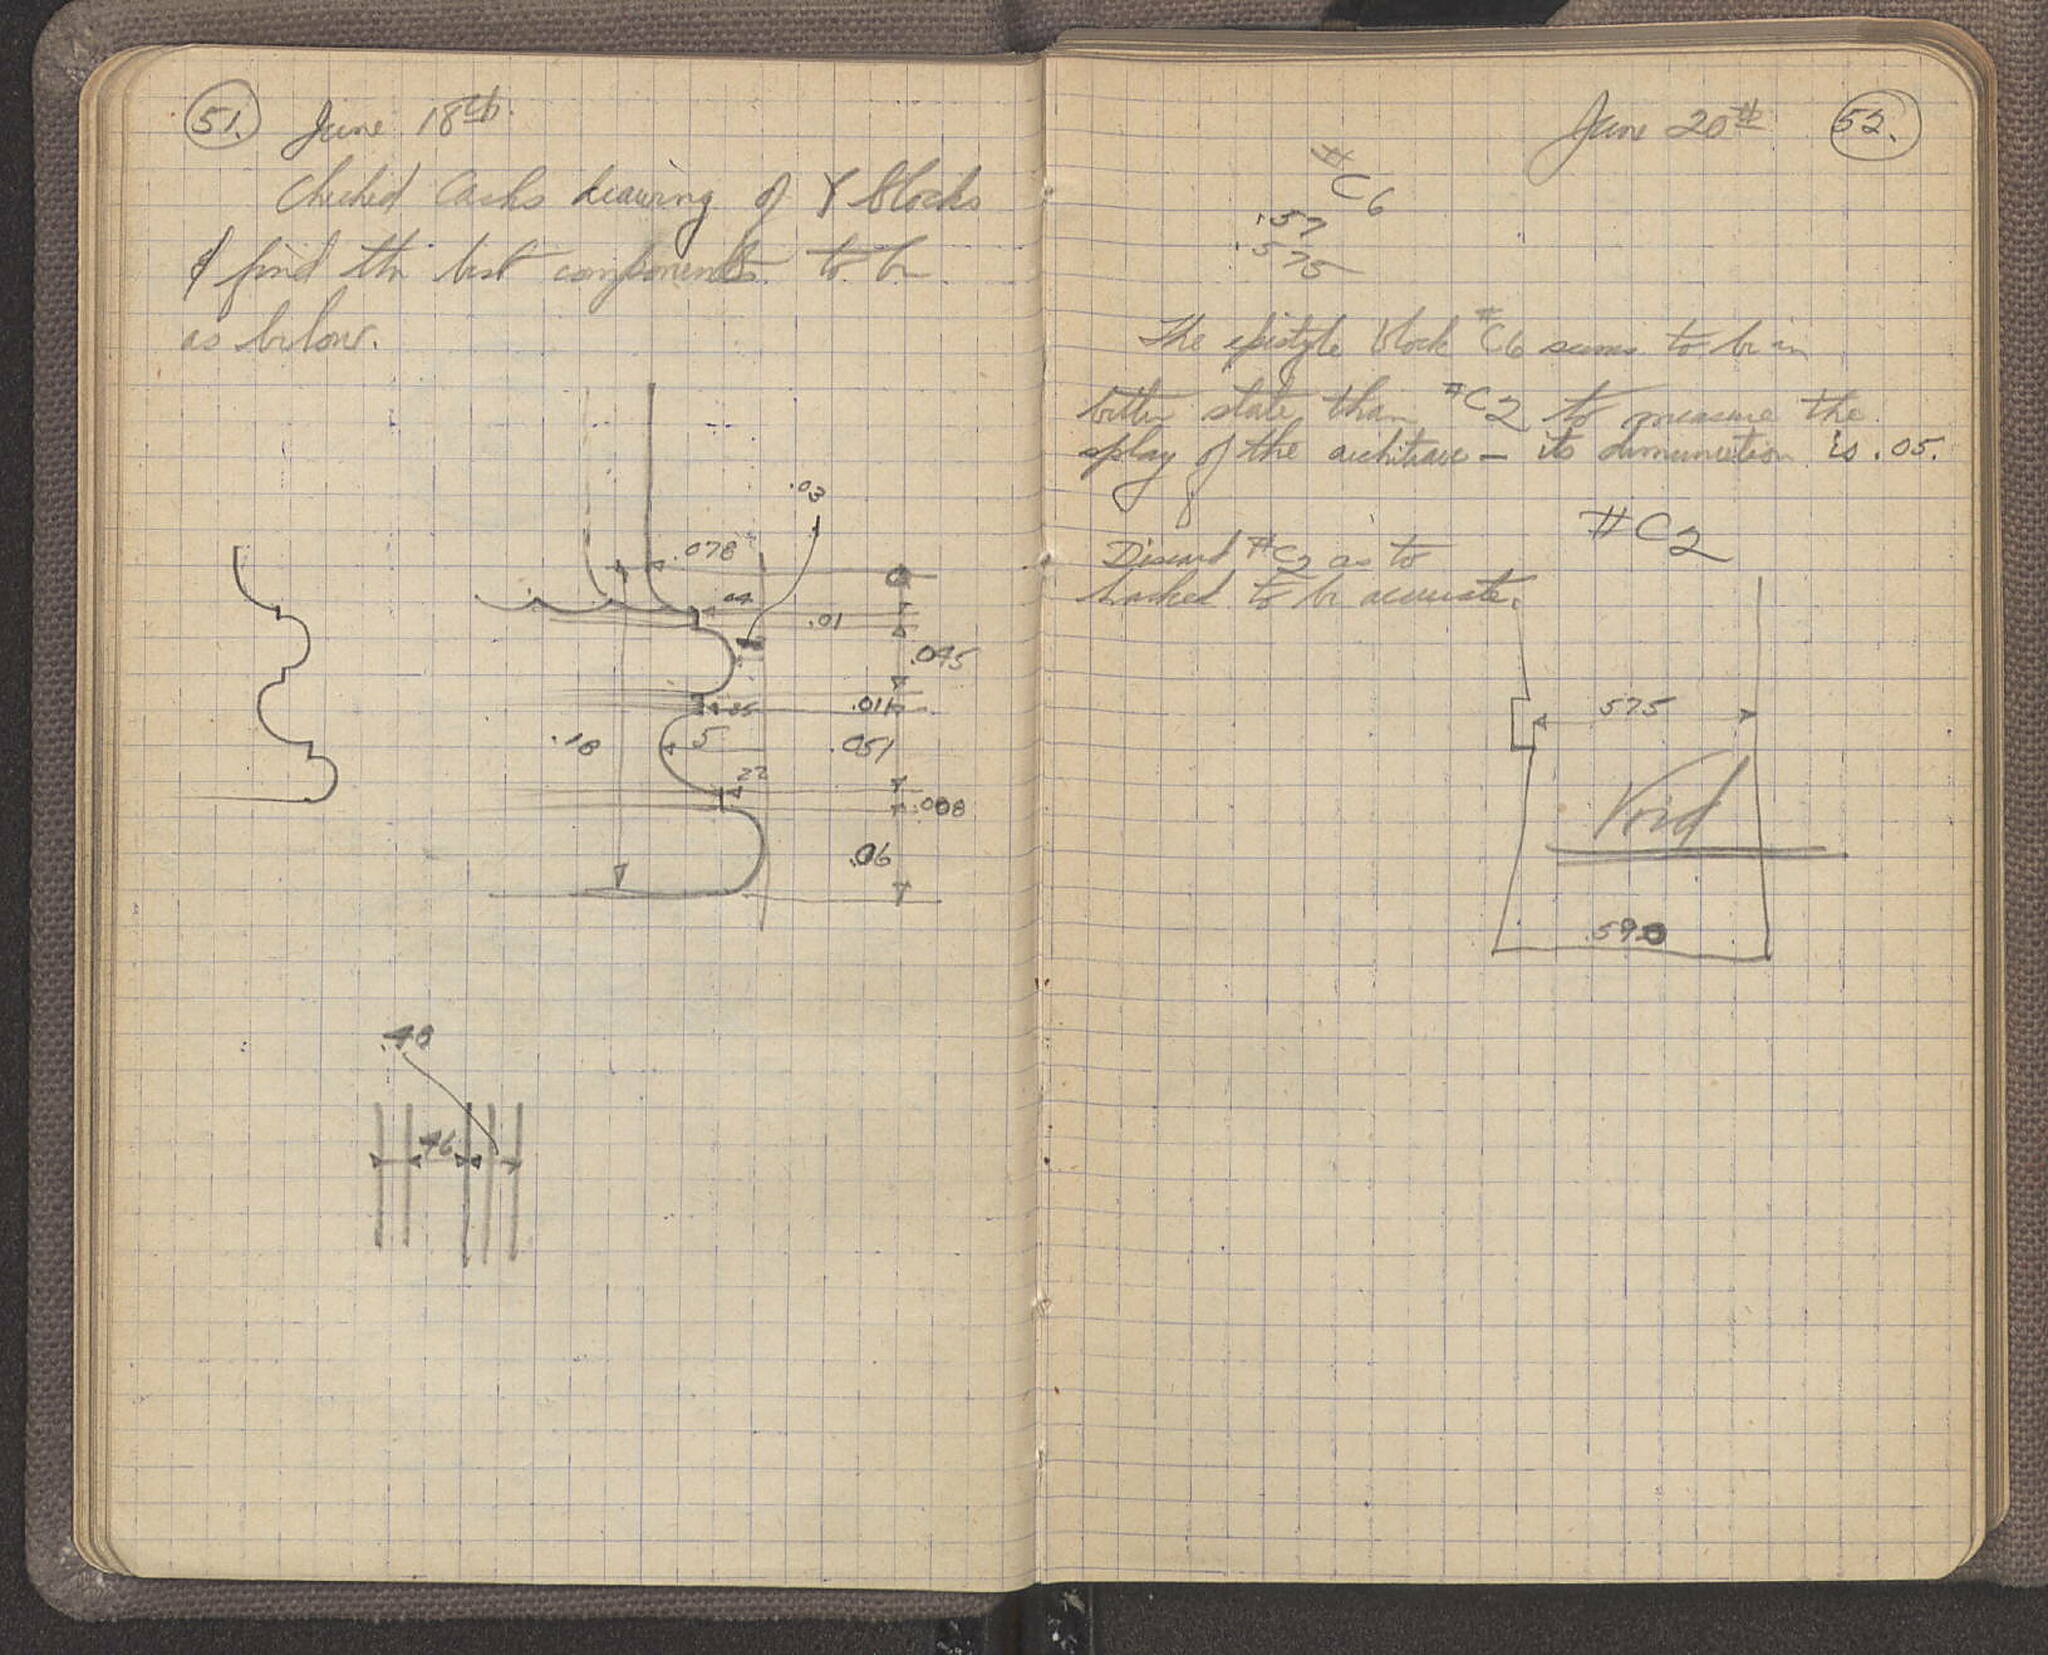 51. June 18th.
Checked Cash's drawing of Y blocks
& find the best components to be
as below.
.03
.078
04
.01
.045
.011
25
.10
5
.051
22
.008
.06
.48
46
June 20th 52.
#C6
.57
.575
The epistyle block #C6 seems to be in
better state than #C2 to measure the
splay of the architrave – its dimunution is .05.
#C2
Discard #C2 as to
hacked to be accurate.
575
Void
590